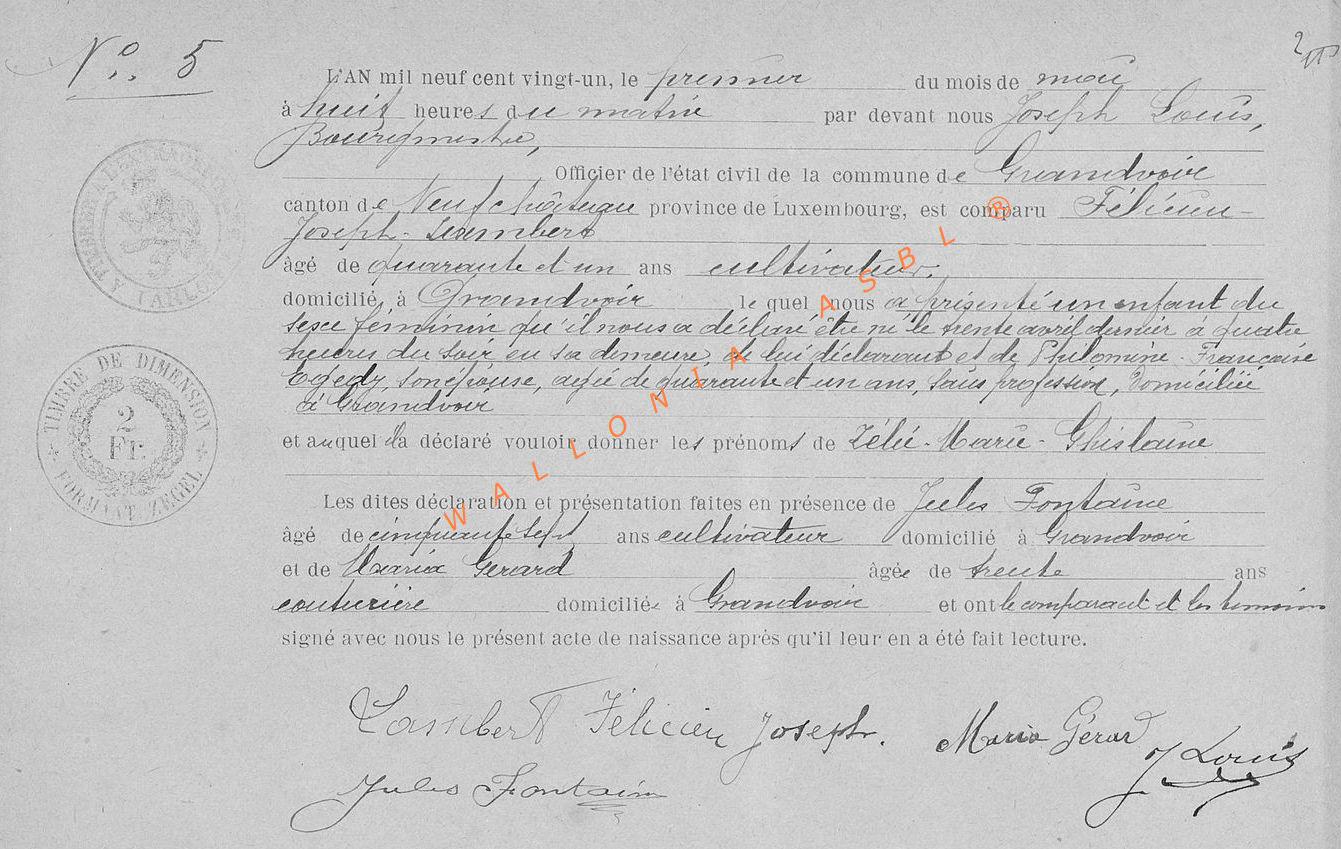 N° 5
2
L'AN mil neuf cent vingt-un, le premier du mois de mai
à huit heures du matin par devant nous Joseph Louis,
Bourgmestre,
Officier de l'état civil de la commune de Grandvoir
canton de Neufchâteau province de Luxembourg, est comparu Félicien-
Joseph-Lambert
âgé de quarante et un ans cultivateur,
domicilié à Grandvoir lequel nous a présenté un enfant du
sexe féminin qu'il nous a déclaré être né le trente avril dernier à quatre
heures du soir en sa demeure, de lui déclarant et de Philomène Françoise
son épouse, agée de quarante et un ans, sans profession, domiciliée
à Grandvoir
et auquel il a déclaré vouloir donner les prénoms de Zélie-Marie-Ghislaine
Les dites déclaration et présentation faites en présence de Jules Fontaine
âgé de cinquante sept ans cultivateur domicilié à Grandvoir
et de Maria Gerard âgée de trente ans
couturière domiciliée à Grandvoir et ont le comparant et les témoins
signé avec nous le présent acte de naissance après qu'il leur en a été fait lecture.
Lambert Félicien Joseph.
Maria Gérard
J Louis
Jules Fontaine
TIMBRE DE DIMENSION
2
Fr.
FORMAAT ZEGEL
WALLONIA ASBL ®